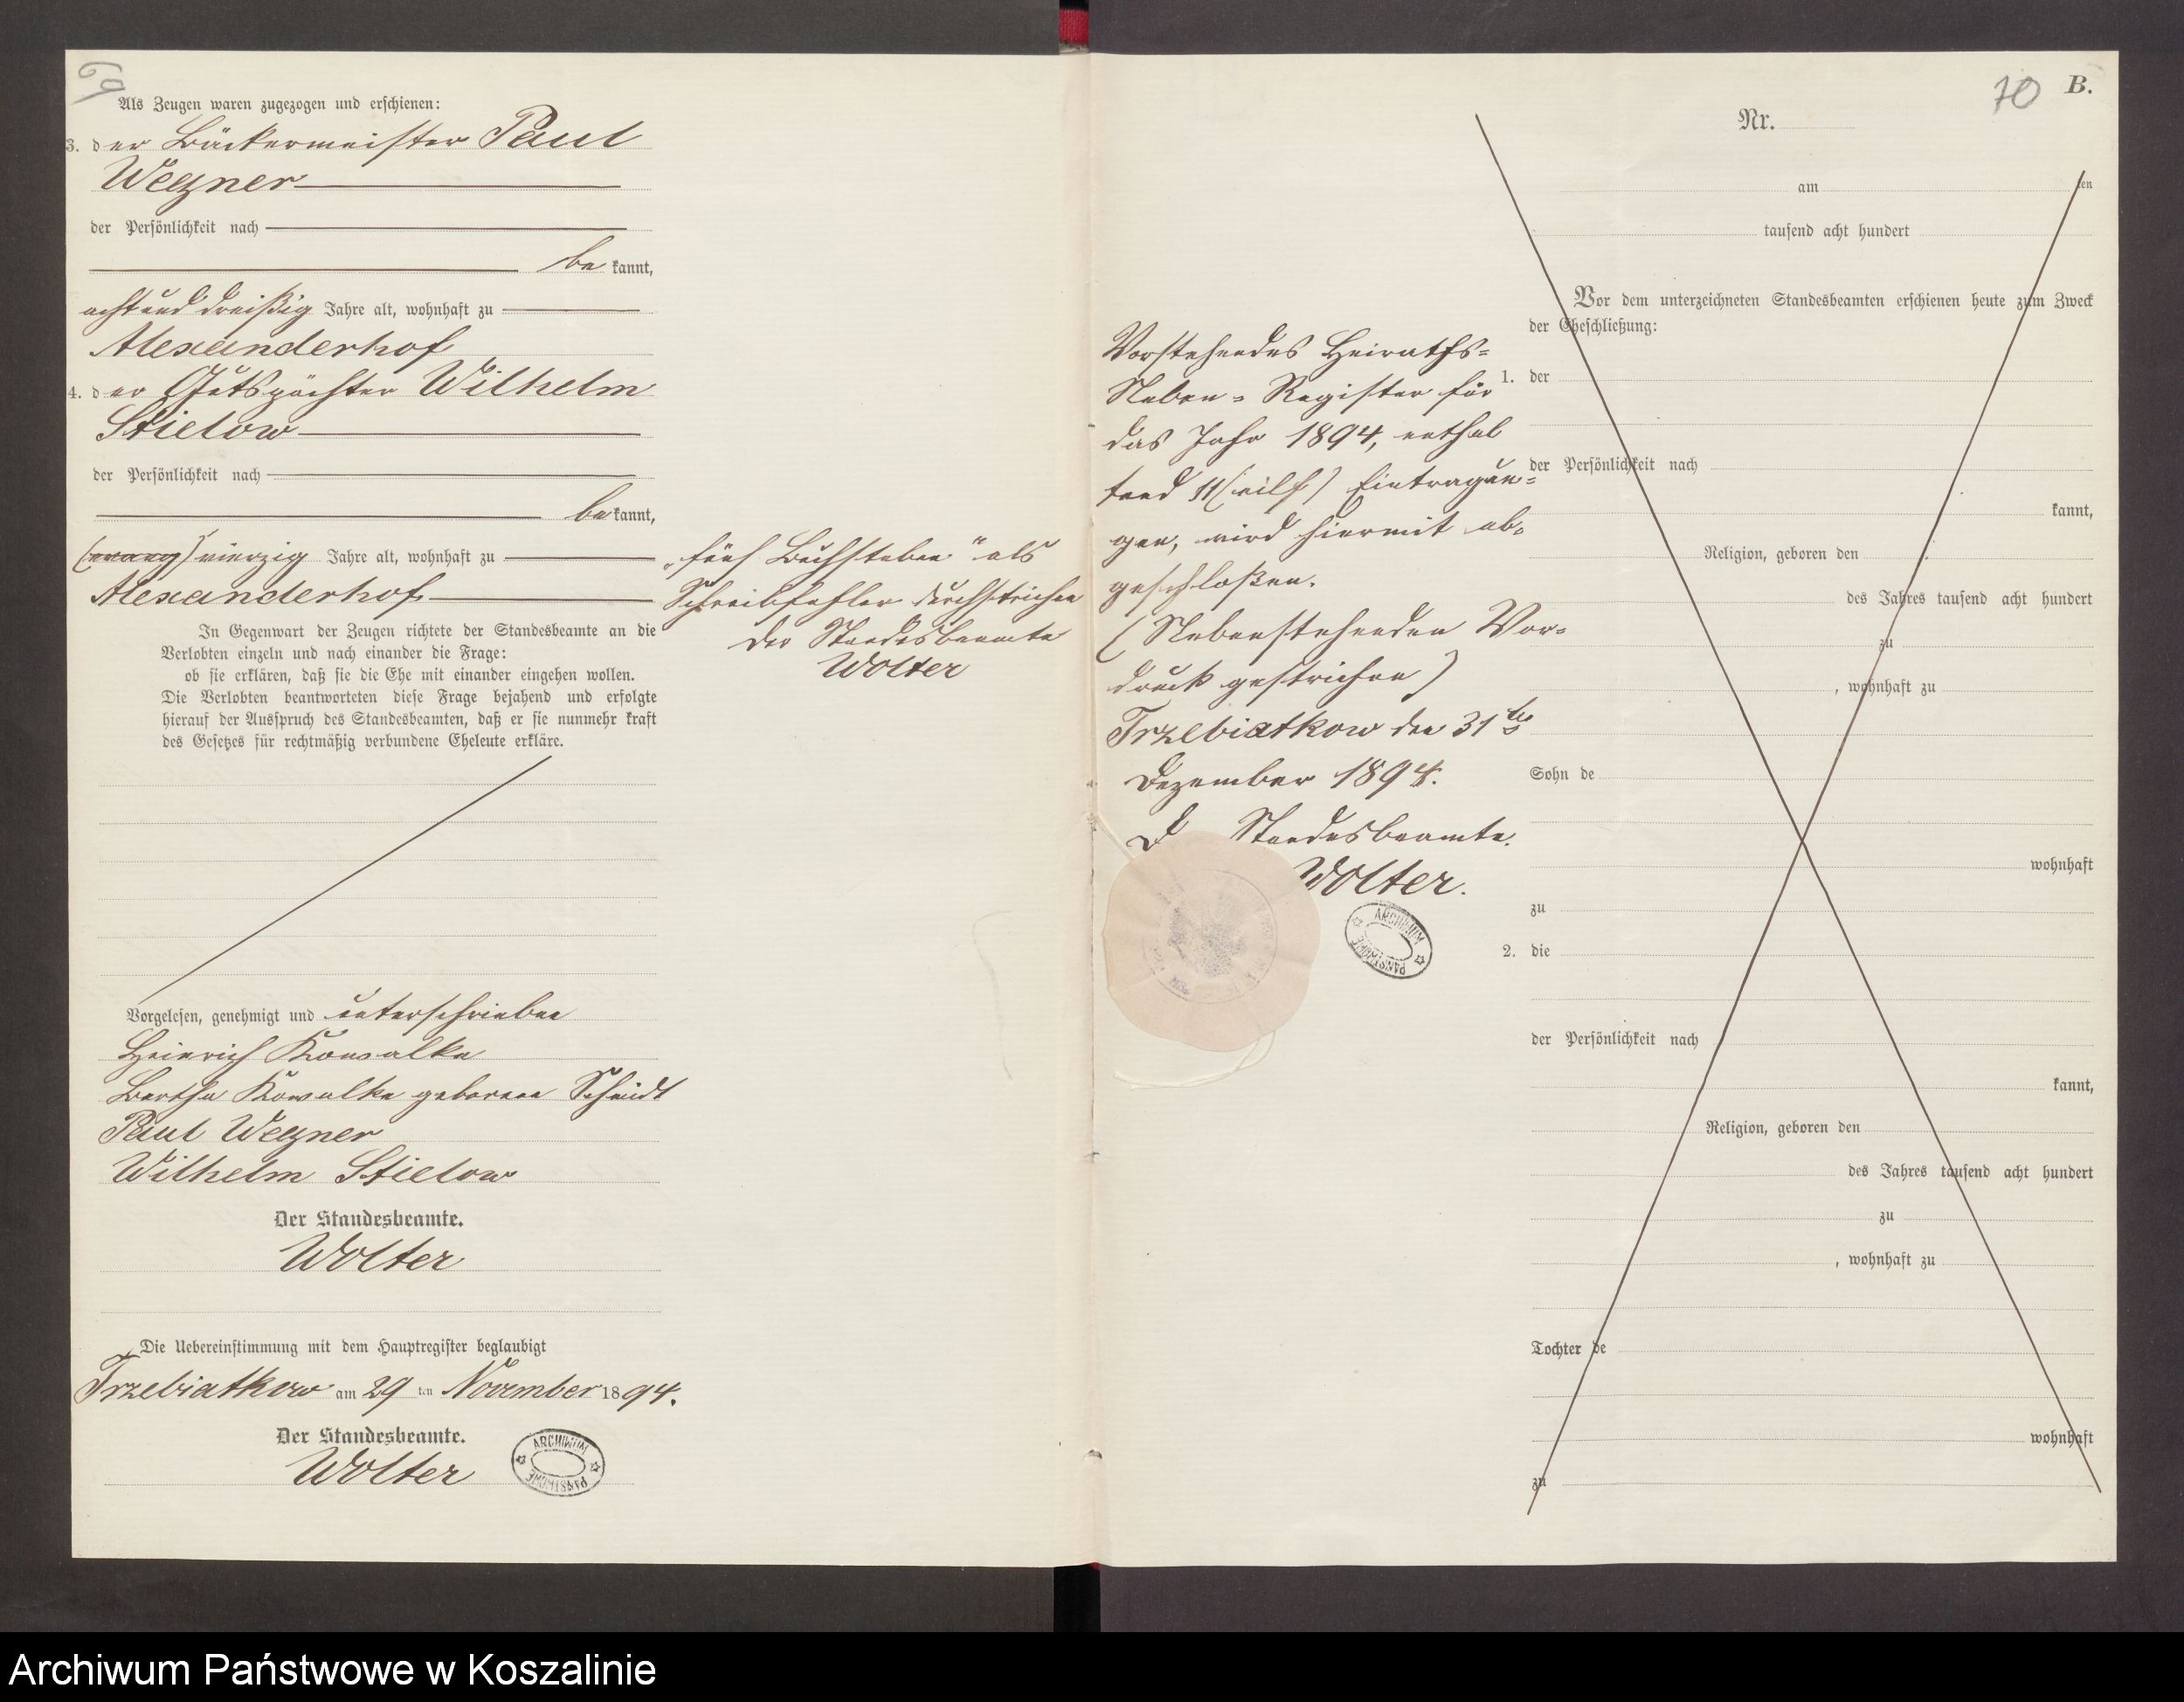 69
Als Zeugen waren zugezogen und erschienen:
3. der Bäckermeister Paul
Wegner
der Persönlichkeit nach
bekannt,
achtund dreißig Jahre alt, wohnhaft zu
Alexanderhof
4. der Gutspächter Wilhelm
Stielow
der Persönlichkeit nach
bekannt,
vierzig Jahre alt, wohnhaft zu
Alexanderhof
In Gegenwart der Zeugen richtete der Standesbeamte an die
Verlobten einzeln und nach einander die Frage:
ob sie erklären, daß sie die Ehe mit einander eingehen wollen.
Die Verlobten beantworteten diese Frage bejahend und erfolgte
hierauf der Ausspruch des Standesbeamten, daß er sie nunmehr kraft
des Gesetzes für rechtmäßig verbundene Eheleute erkläre.
Vorgelesen, genehmigt und unterschrieben
Heinrich Kowalke
Bertha Kowalke geborene Schmidt
Paul Wegner
Wilhelm Stielow
Der Standesbeamte.
Wolter
Die Uebereinstimmung mit dem Hauptregister beglaubigt
Trzebiatkow am 29 ten November 1894.
Der Standesbeamte.
Wolter
ARCHIWUM
PAŃSTWOWE
„fünf Buchstaben" als
Schreibfehler durchstrichen
Der Standesbeamte
Wolter
Vorstehendes Heiraths-
Neben-Register für
das Jahr 1894, enthal
tend 11 (eilf) Eintragun-
gen, wird hiermit ab-
geschloßen.
(Nebenstehenden Vor-
druck gestrichen)
Trzebiatkow den 31ten
Dezember 1894.
D Standesbeamte.
Wolter.
ARCHIWUM
PAŃSTWOWE
70 B.
Nr.
am ten
tausend acht hundert
Vor dem unterzeichneten Standesbeamten erschienen heute zum Zweck
der Eheschließung:
1. der
der Persönlichkeit nach
kannt,
Religion, geboren den
des Jahres tausend acht hundert
zu
, wohnhaft zu
Sohn de
wohnhaft
zu
2. die
der Persönlichkeit nach
kannt,
Religion, geboren den
des Jahres tausend acht hundert
zu
, wohnhaft zu
Tochter de
wohnhaft
zu
Archiwum Państwowe w Koszalinie